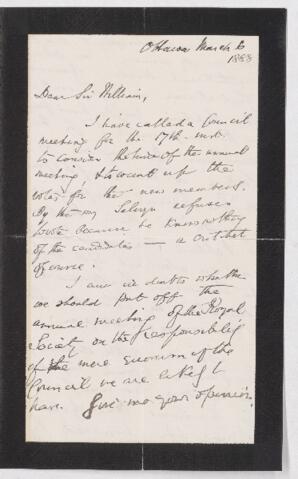 Ottawa March 6
1888
Dear Sir William,
I have called a Council
meeting for the 17th inst.
to consider the time of the annual
meeting, & to count up the
votes for the new members.
By the way Selwyn refuses
to vote because he knows nothing
of the candidates — a
of course.
I am in doubts whether
we should put off the
annual meeting of the Royal
Society on the responsibility
of the mere quorum of the
Council we are likely to
have. Give me your opinion.